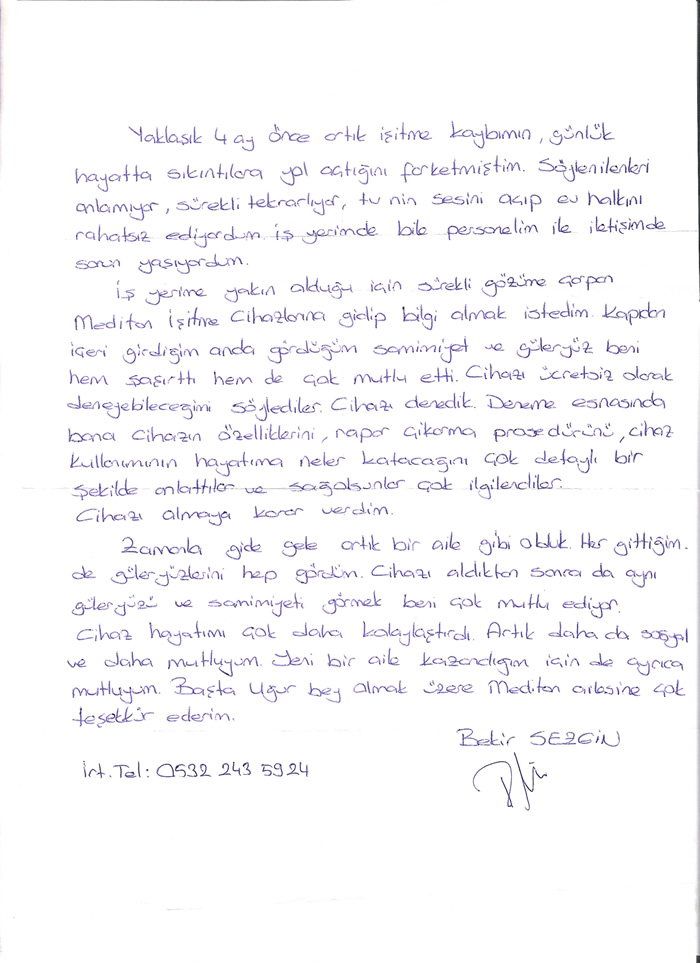 Yaklaşık 4 ay önce artık işitme kaybımın, günlük
hayatta sıkıntılara yol açtığını farketmiştim. Söylenilenleri
anlamıyor, sürekli tekrarlıyor, tv nin sesini açıp ev halkını
rahatsız ediyordum. İş yerimde bile personelim ile iletişimde
sorun yaşıyordum.
İş yerime yakın olduğu için sürekli gözüme çarpan
Mediton İşitme Cihazlarına gidip bilgi almak istedim. Kapıdan
içeri girdiğim anda gördüğüm samimiyet ve güleryüz beni
hem şaşırttı hem de çok mutlu etti. Cihazı ücretsiz olarak
deneyebileceğimi söylediler. Cihazı denedik. Deneme esnasında
bana cihazın özelliklerini, rapor çıkarma prosedürünü, cihaz
kullanımının hayatıma neler katacağını çok detaylı bir
şekilde anlattılar ve sağolsunlar çok ilgilendiler.
Cihazı almaya karar verdim.
Zamanla gide gele artık bir aile gibi olduk. Her gittiğim.
de güleryüzlerini hep gördüm. Cihazı aldıktan sonra da aynı
güleryüzü ve samimiyeti görmek beni çok mutlu ediyor.
Cihaz hayatımı çok daha kolaylaştırdı. Artık daha da sosyal
ve daha mutluyum. Yeni bir aile kazandığım için de ayrıca
mutluyum. Başta Uğur bey olmak üzere Mediton ailesine çok
teşekkür ederim.
Bekir SEZGİN
İrt.Tel: 0532 243 5924